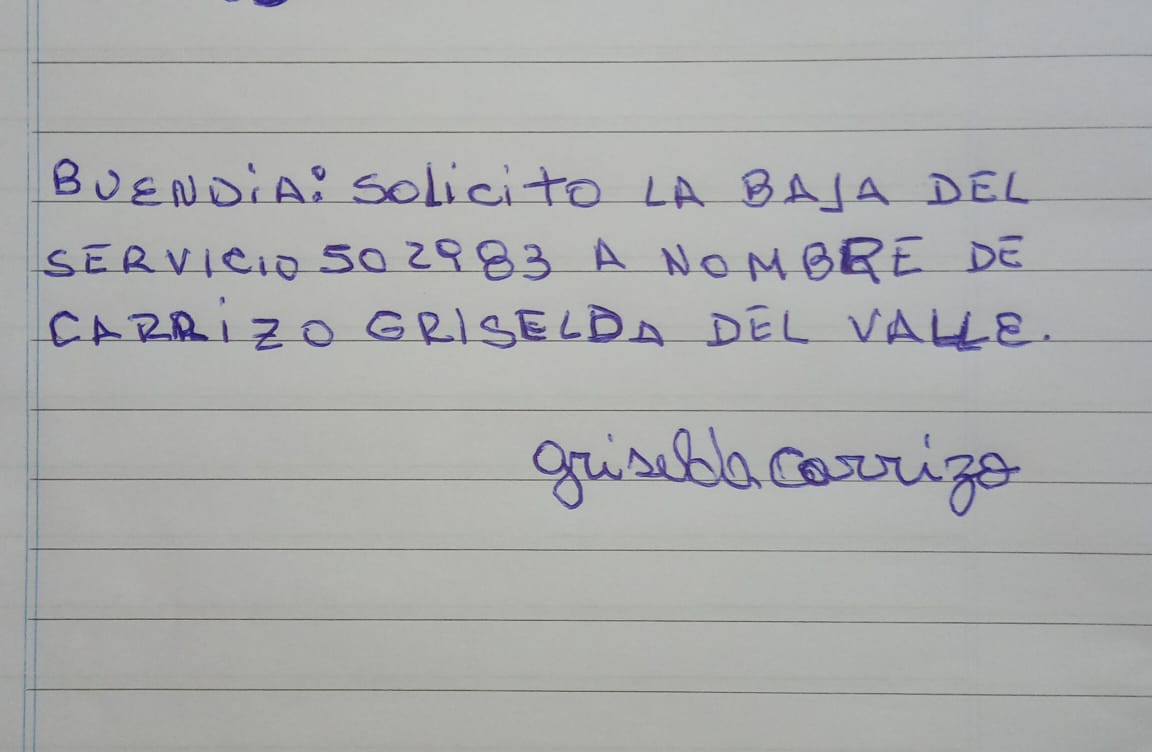 BUENDiA: SOLiCiTO LA BAJA DEL
SERVICIO 502983 A NOMBRE DE
CARRiZO GRISELDA DEL VALLE.
griselda carrizo